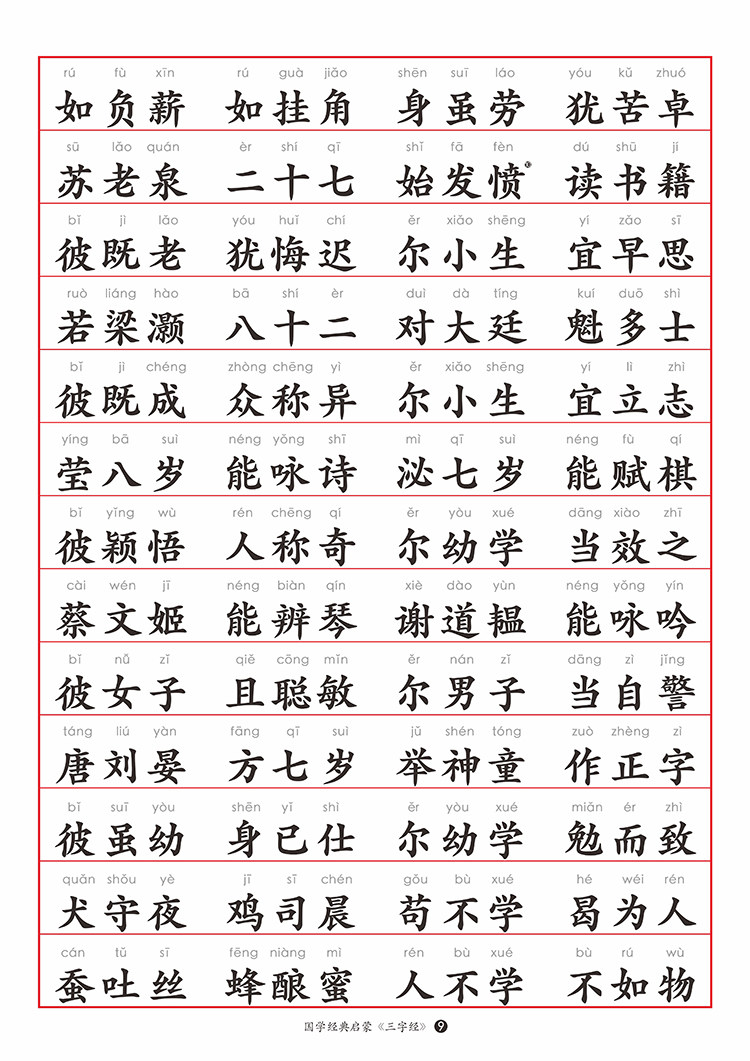 rú fù xīn rú guà jiǎo shēn suī láo yóu kǔ zhuó
如负薪 如挂角 身虽劳 犹苦卓
sū lǎo quán èr shí qī shǐ fā fèn dú shū jí
苏老泉 二十七 始发愤 读书籍
bǐ jì lǎo yóu huǐ chí ěr xiǎo shēng yí zǎo sī
彼既老 犹悔迟 尔小生 宜早思
ruò liáng hào bā shí èr duì dà tíng kuí duō shì
若梁灏 八十二 对大廷 魁多士
bǐ jì chéng zhòng chēng yì ěr xiǎo shēng yí lì zhì
彼既成 众称异 尔小生 宜立志
yíng bā suì néng yǒng shī mì qī suì néng fù qí
莹八岁 能咏诗 泌七岁 能赋棋
bǐ yǐng wù rén chēng qí ěr yòu xué dāng xiào zhī
彼颖悟 人称奇 尔幼学 当效之
cài wén jī néng biàn qín xiè dào yùn néng yǒng yín
蔡文姬 能辨琴 谢道韫 能咏吟
bǐ nǚ zǐ qiě cōng mǐn ěr nán zǐ dāng zì jǐng
彼女子 且聪敏 尔男子 当自警
táng liú yàn fāng qī suì jǔ shén tóng zuò zhèng zì
唐刘晏 方七岁 举神童 作正字
bǐ suī yòu shēn yǐ shì ěr yòu xué miǎn ér zhì
彼虽幼 身已仕 尔幼学 勉而致
quǎn shǒu yè jī sī chén gǒu bù xué hé wéi rén
犬守夜 鸡司晨 苟不学 曷为人
cán tǔ sī fēng niàng mì rén bù xué bù rú wù
蚕吐丝 蜂酿蜜 人不学 不如物
国学经典启蒙《三字经》 9